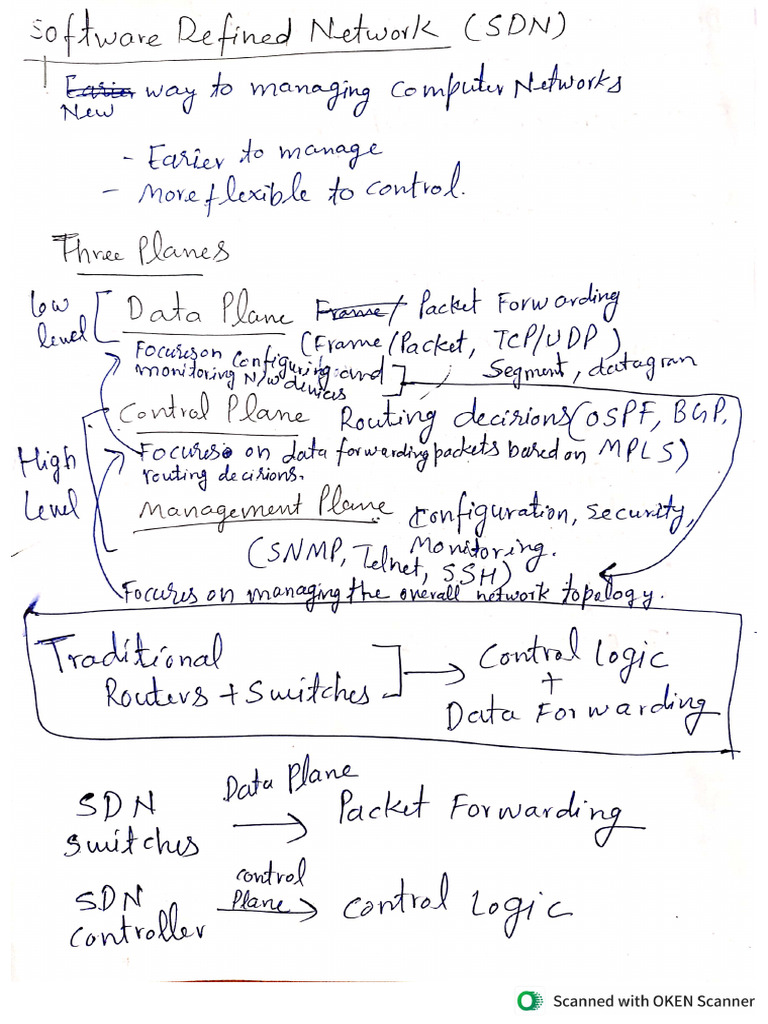 Software Defined Network (SDN)
Easier way to managing Computer Networks
New
- Easier to manage
- More flexible to control.
Three Planes
Low
level
Data Plane Frame/ Packet Forwarding
(Frame/Packet, TCP/UDP)
Segment, datagram
Focuses on configuring and
monitoring N/w devices
Control Plane Routing decisions (OSPF, BGP,
MPLS)
High
Level
Focuses on data forwarding packets based on
routing decisions.
Management Plane Configuration, Security,
Monitoring.
(SNMP, Telnet, SSH)
Focuses on managing the overall network topology.
Traditional
Routers + Switches
Control Logic
+
Data Forwarding
SDN
Switches
Data Plane
Packet Forwarding
SDN
Controller
control
Plane
Control Logic
Scanned with OKEN Scanner